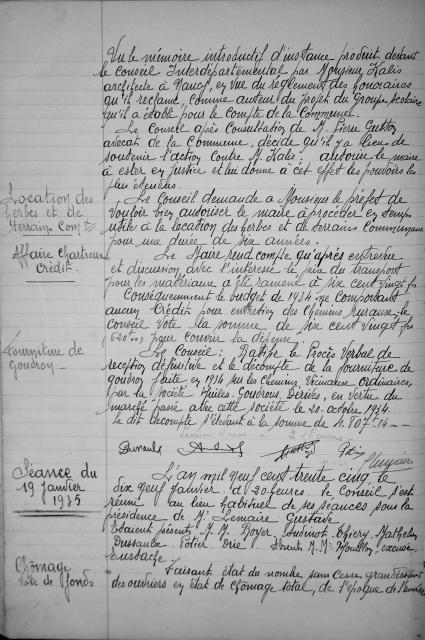 Vu le mémoire introductif d'instance produit devant
le Conseil Interdépartemental par Monsieur Kalis
architecte à Nancy, en vue du règlement des honoraires
qu'il réclame comme auteur du projet du Groupe scolaire
qu'il a établi pour le compte de la Commune.
Le Conseil après Consultation de M. Pierre
avocat de la Commune, décide qu'il y a lieu de
soutenir l'action contre M. Kalis; autorise le maire
à ester en justice et lui donne à cet effet les pouvoirs les
plus étendus.
Location des
herbes et de
terrains Com.
Le Conseil demande à Monsieur le préfet de
vouloir bien autoriser le maire à procéder en temps
utile à la location des herbes et de terrains communaux
pour une durée de six années.
Affaire Chartreux
Crédit.
Le Maire rend compte qu'après entrevue
et discussion avec l'intéressé le prix du transport
pour les matériaux a été ramené à six cent vingt frs
Conséquemment le budget de 1934 ne comportant
aucun Crédit pour entretien des Chemins ruraux, le
conseil vote la somme de six cent vingt frs
(620.00) pour couvrir la dépense.
Fourniture de
Goudron
Le Conseil; Ratifie le Procès Verbal de
réception définitive et le décompte de la fourniture de
goudron faite en 1934 sur les Chemins Vicinaux Ordinaires,
par la Société Huiles, Goudrons, Dérivés, en vertu du
marché passé avec cette société le 20 octobre 1934.
le dit décompte s'élevant à la somme de 4.807.14
Dussaulx
Séance du
19 janvier
1935
L'an mil neuf cent trente cinq, le
dix neuf Janvier à 20 heures. le Conseil s'est
réuni au lieu habituel de ses séances sous la
présidence de M. Lemaire Gustave
Étaient présents M. M. Boyer. Thiéry. Mathelin
Dussaulx. Potier. Absents M. M. excusé
Eustache
Chômage
Vote de fonds
Faisant état du nombre sans cesse grandissant
des ouvriers en état de chômage total, de l'époque de